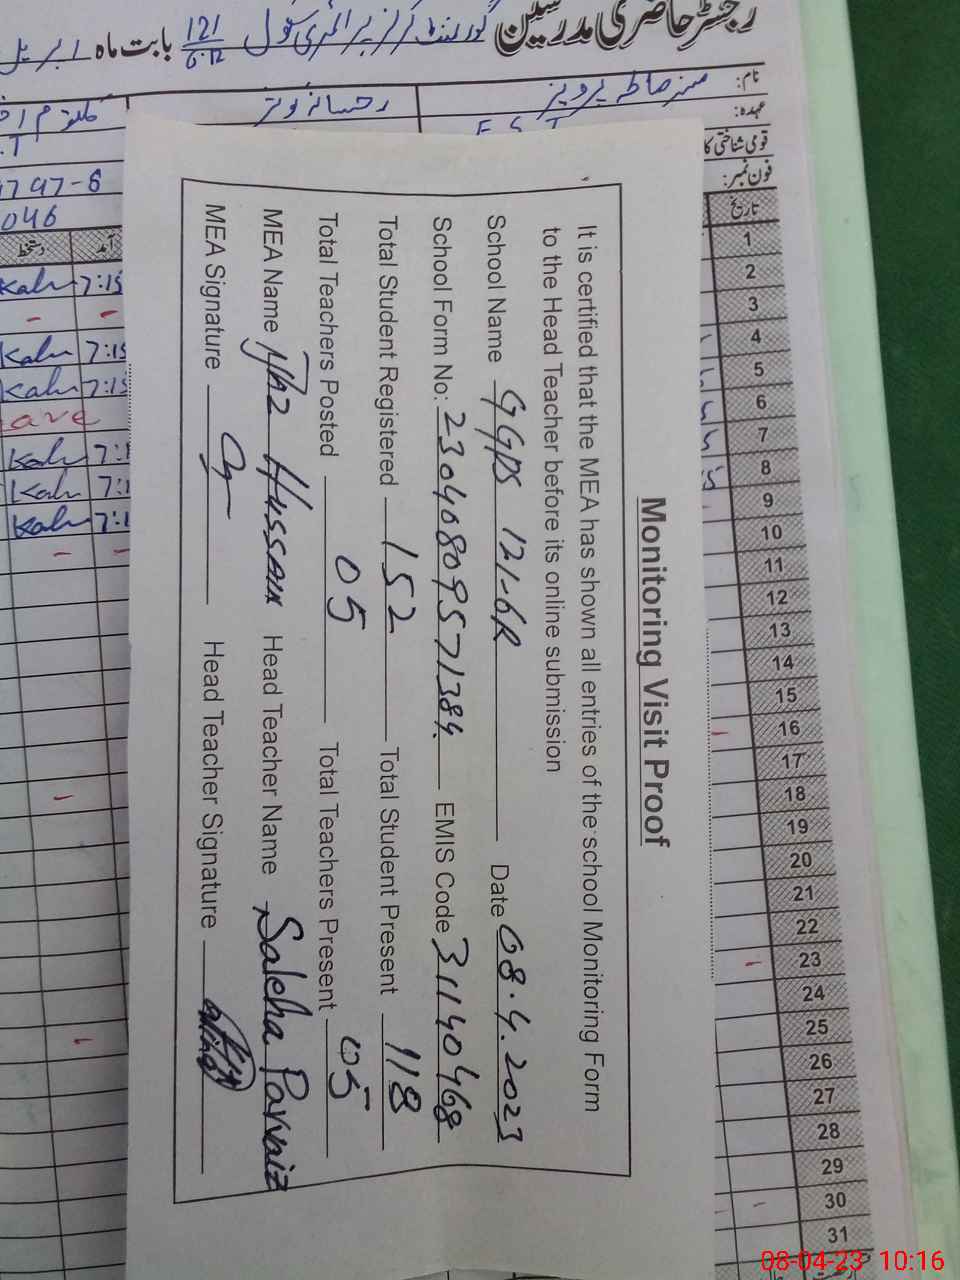 رجسٹر حاضری مدرسین گورنمنٹ گرلز پرائمری سکول 121/6-R بابت ماہ اپریل
نام:
عہدہ:
قومی شناختی کا
فون نمبر:
تاریخ
E S T
.T
1797-6
046
دستخط آمد
Kalu 7:15
Kalu 7:15
Kalu 7:15
ave
Kalu 7:1
Kalu 7:1
Kalu 7:1
1
2
3
4
5
6
7
8
9
10
11
12
13
14
15
16
17
18
19
20
21
22
23
24
25
26
27
28
29
30
31
Monitoring Visit Proof
It is certified that the MEA has shown all entries of the school Monitoring Form
to the Head Teacher before its online submission
School Name GGPS 121-6R Date 08.4.2023
School Form No: 23040809571384 EMIS Code 31140468
Total Student Registered 152 Total Student Present 118
Total Teachers Posted 05 Total Teachers Present 05
MEA Name Ijaz Hussain Head Teacher Name Saleha Parvaiz
MEA Signature Head Teacher Signature
08-04-23 10:16